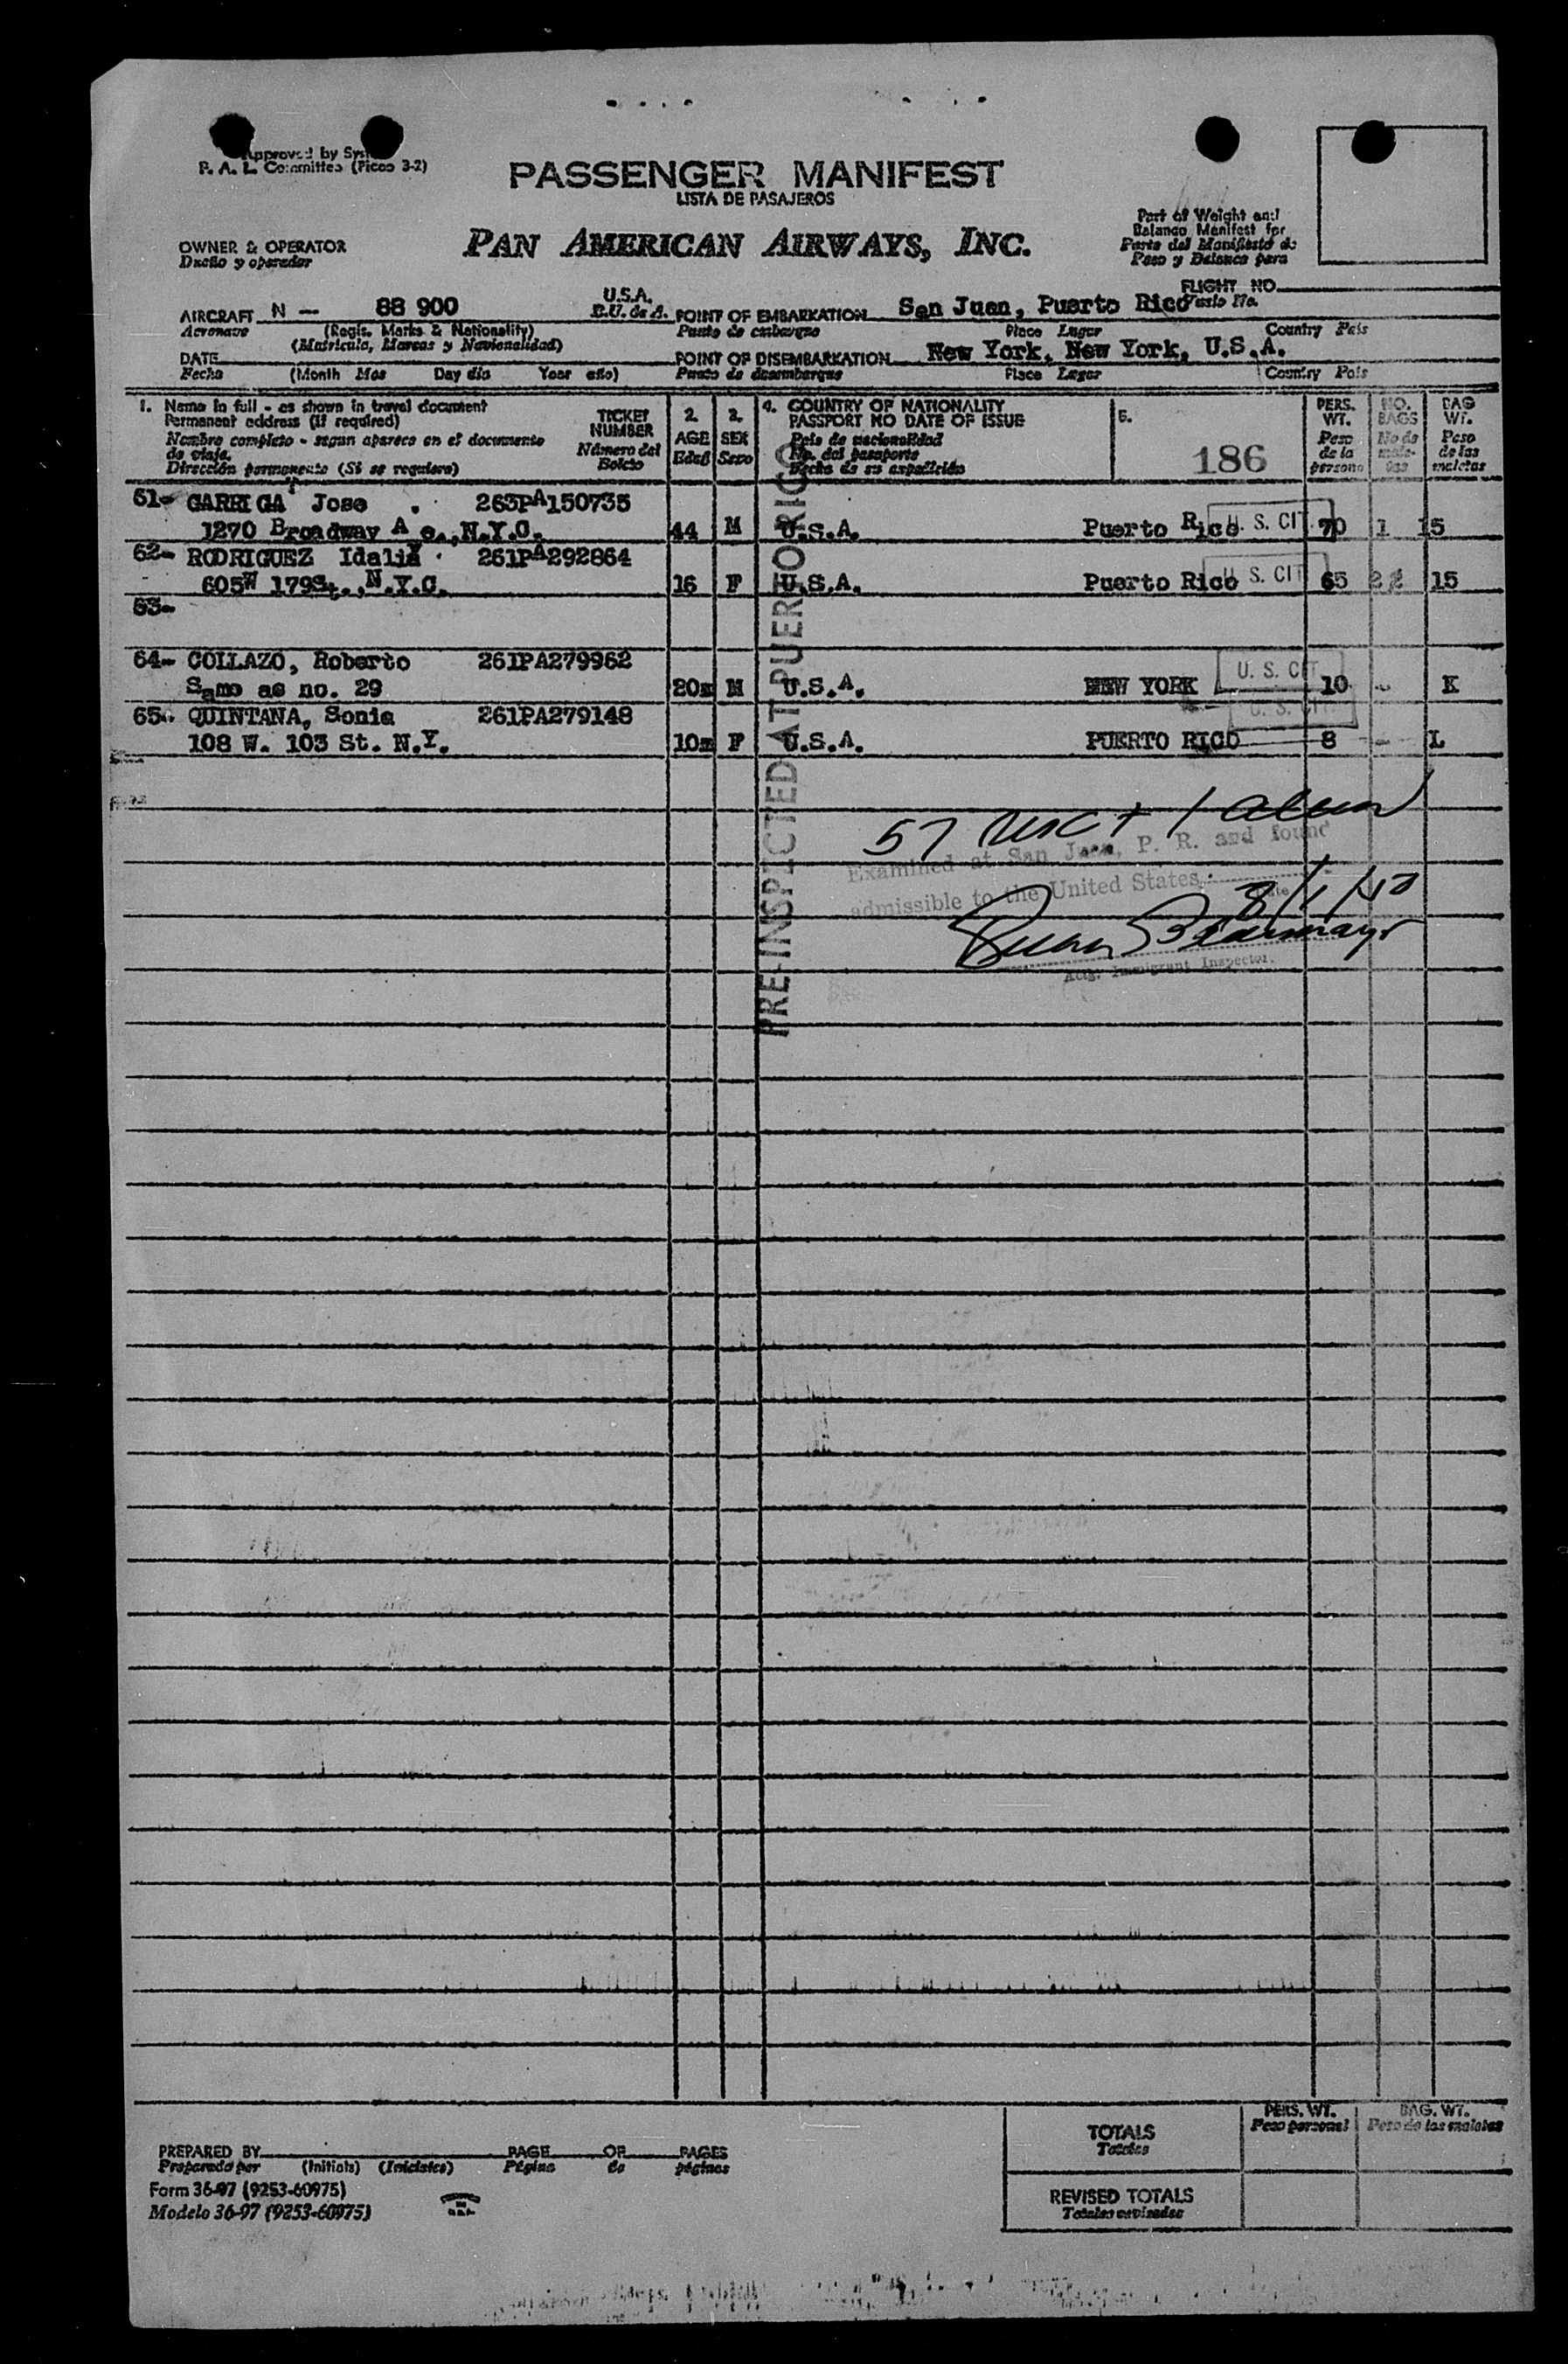 Approved by Sys
P. A. L. Committee (Picao 3-2)
PASSENGER MANIFEST
LISTA DE PASAJEROS
OWNER & OPERATOR
Dueño y operador
PAN AMERICAN AIRWAYS, INC.
Part of Weight and
Balance Manifest for
Parte del Manifiesto de
Peso y Balance para
FLIGHT NO.
Vuelo No.
AIRCRAFT N - 88 900 U.S.A. E.U. de A. POINT OF EMBARKATION San Juan, Puerto Rico
Aeronave (Regis. Marks & Nationality) Punto de embarque Place Lugar Country Pais
(Matricula, Marcas y Nacionalidad)
DATE POINT OF DISEMBARKATION New York, New York, U.S.A.
Fecha (Month Mes Day dia Year año) Punto de desembarque Place Lugar Country Pais
1. Name in full - as shown in travel document
Permanent address (if required)
Nombre completo - segun aparece en el documento
de viaje.
Dirección permanente (Si se requiere)
TICKET
NUMBER
Número del
Boleto
2.
AGE
Edad
3.
SEX
Sexo
4. COUNTRY OF NATIONALITY
PASSPORT NO DATE OF ISSUE
Pais de nacionalidad
No. del pasaporte
Fecha de su expedición
5.
186
PERS.
WT.
Peso
de la
persona
NO.
BAGS
No de
male-
tas
BAG
WT.
Peso
de las
maletas
61- GARRIGA Jose . 263PA150735
1270 Broadway A e.,N.Y.C. 44 M U.S.A. Puerto Rico U. S. CIT. 70 1 15
62- RODRIGUEZ Idalia 261PA292864
605W 179St.,N.Y.C. 16 F U.S.A. Puerto Rico U. S. CIT 65 22 15
63-
64- COLLAZO, Roberto 261PA279962
Same as no. 29 20m M U.S.A. NEW YORK U. S. CIT. 10 - K
65- QUINTANA, Sonia 261PA279148
108 W. 103 St. N.Y. 10m F U.S.A. PUERTO RICO U. S. CIT 8 - L
PRE-INSPECTED AT PUERTO RICO
57 USC + 1 alien
Examined at San Juan, P. R. and found
admissible to the United States.
8/1/50
Actg. Immigrant Inspector.
PREPARED BY PAGE OF PAGES
Preparado por (Initials) (Iniciales) Página de páginas
Form 36-97 (9253-60975)
Modelo 36-97 (9253-60975)
TOTALS
Totales
PERS. WT.
Peso personal
BAG. WT.
Peso de las maletas
REVISED TOTALS
Totales revisados